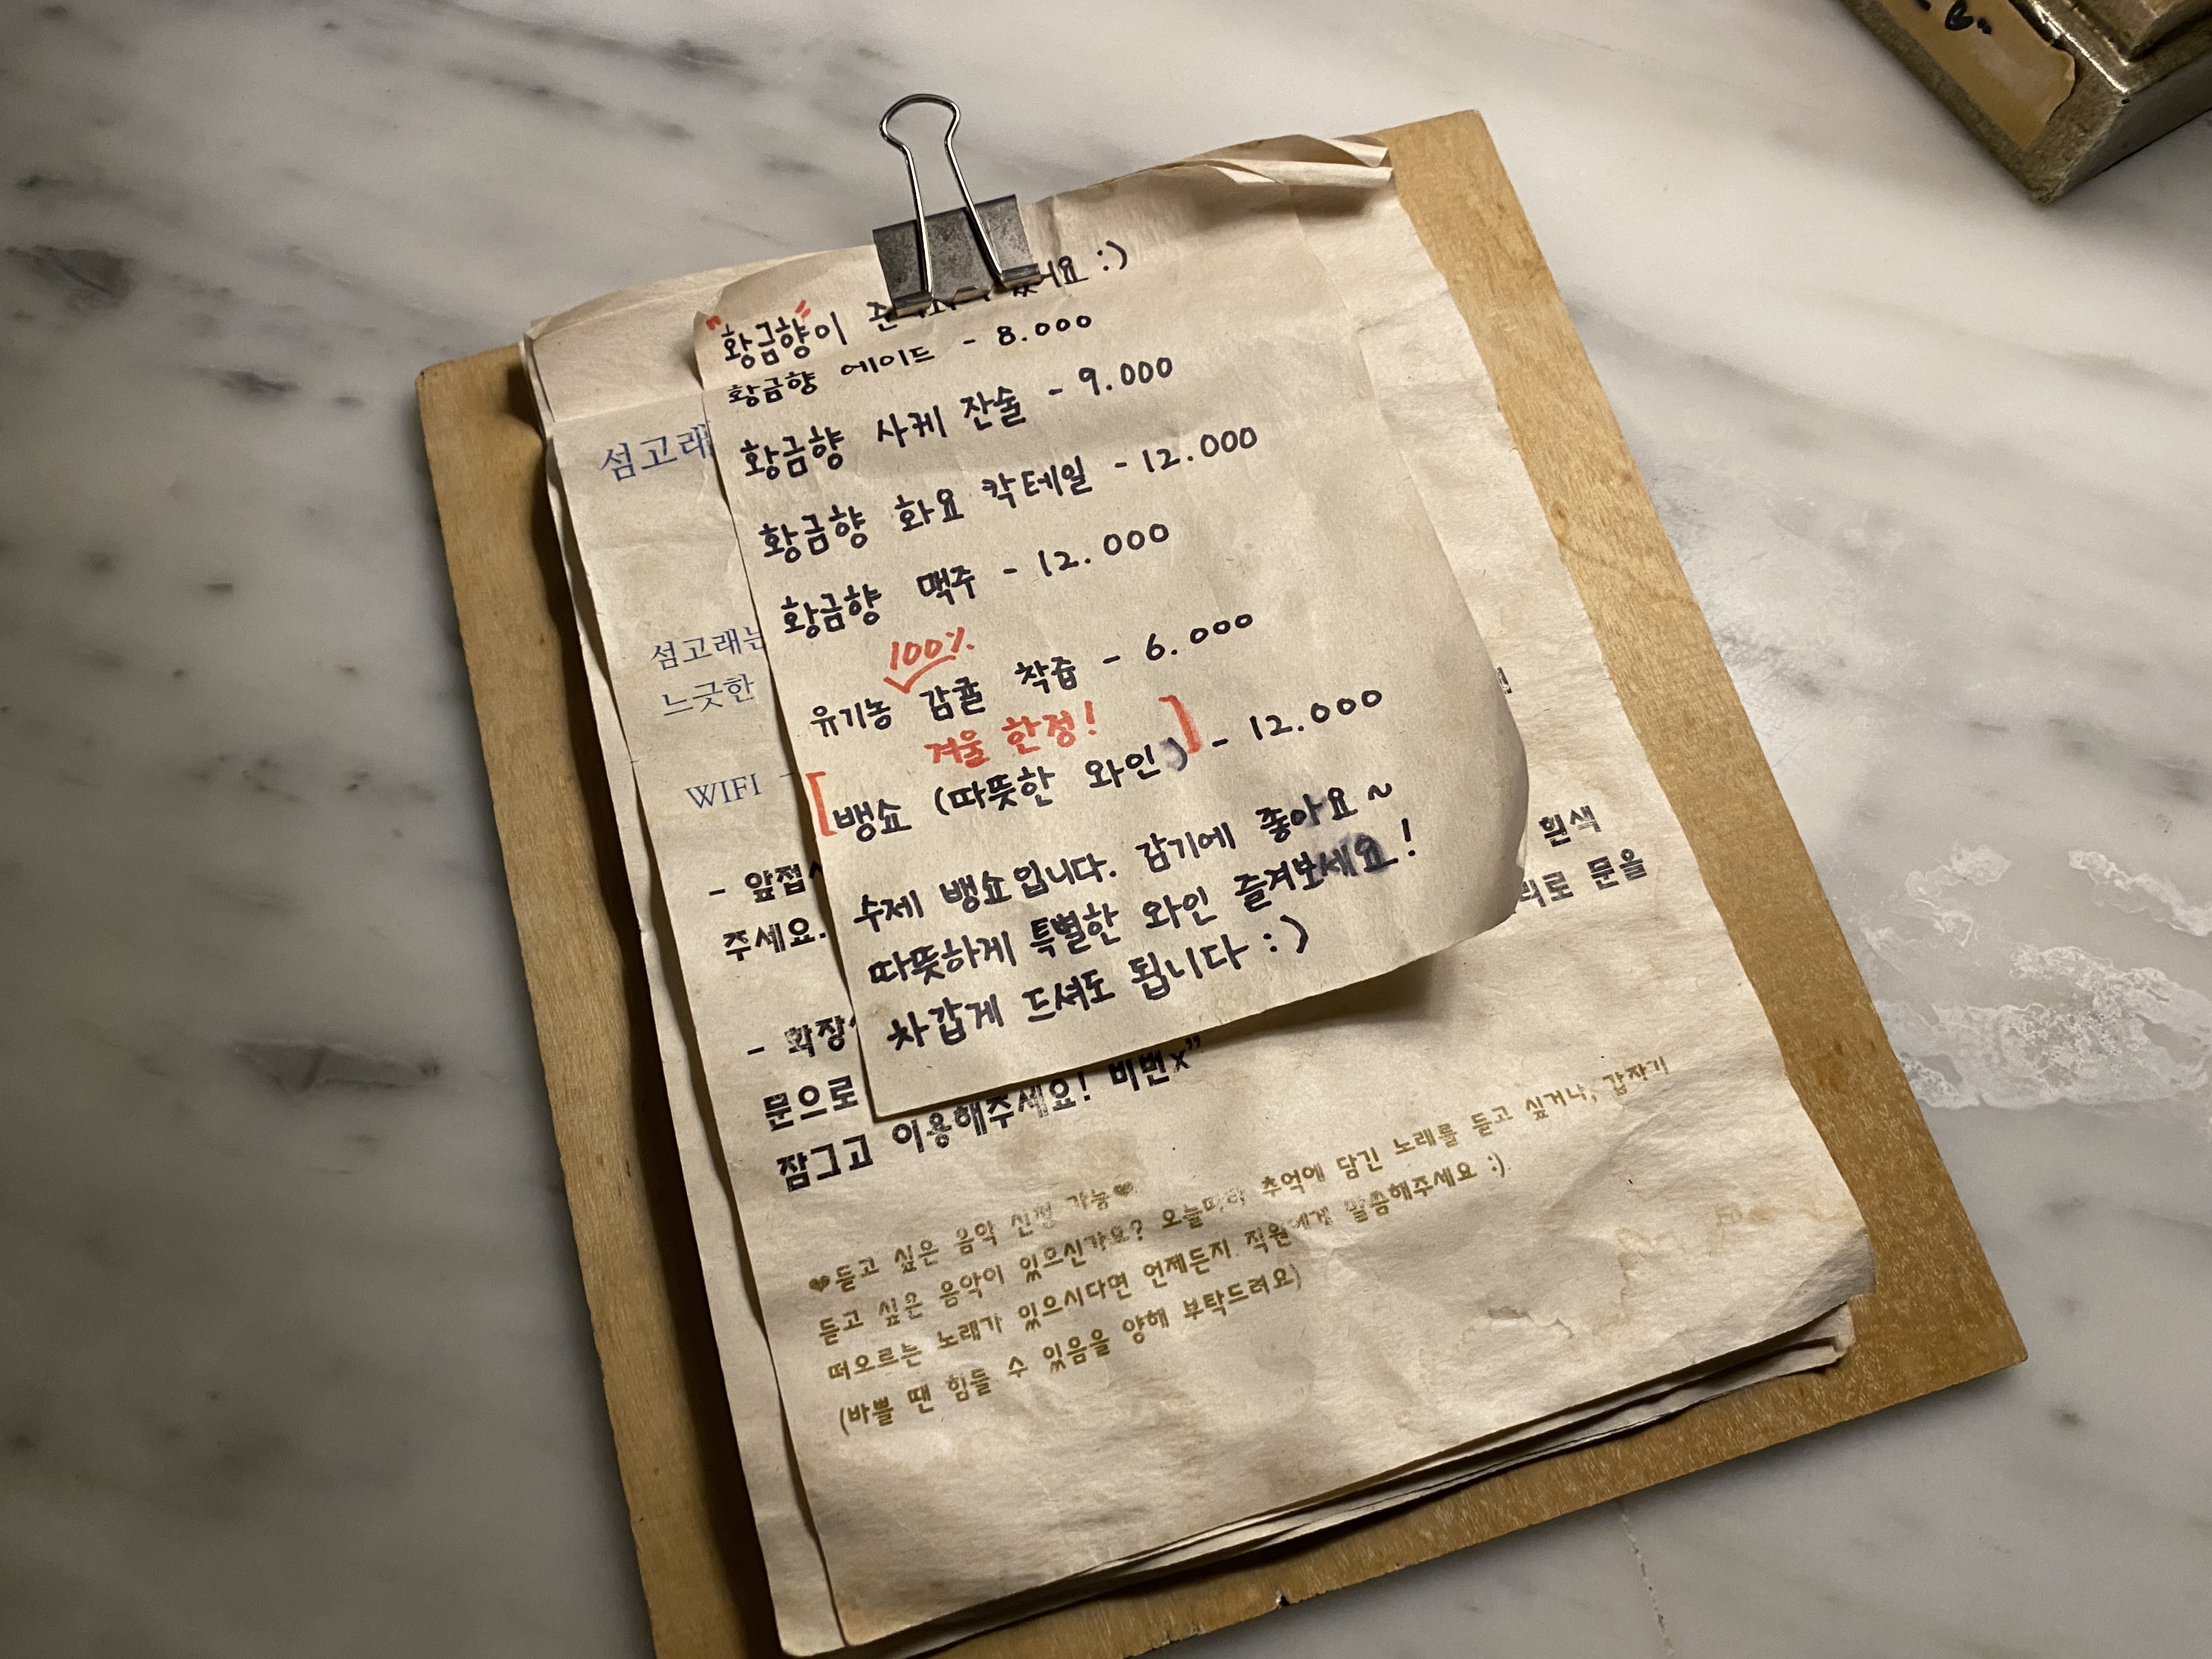 "황금향"이
황금향 에이드 - 8.000
황금향 사케 잔술 - 9.000
황금향 화요 칵테일 - 12.000
황금향 맥주 - 12.000
100%
유기농 감귤 착즙 - 6.000
겨울 한정!
[뱅쇼 (따뜻한 와인)] - 12.000
수제 뱅쇼입니다. 감기에 좋아요~
따뜻하게 특별한 와인 즐겨보세요!
차갑게 드셔도 됩니다 :)
섬고래
섬고래는
느긋한
WIFI -
- 앞접
주세요.
흰색
- 화장
문을
문으로
잠그고 이용해주세요! 비번x"
♥듣고 싶은 음악 신청 가능♥
듣고 싶은 음악이 있으신가요? 오늘따라 추억에 담긴 노래를 듣고 싶거나, 갑자기
떠오르는 노래가 있으시다면 언제든지 직원에게 말씀해주세요 :)
(바쁠 땐 힘들 수 있음을 양해 부탁드려요)